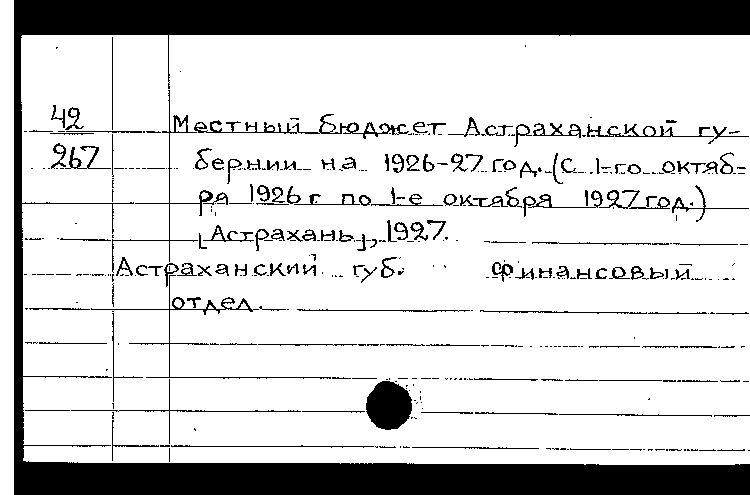 42
267
Местный бюджет Астраханской гу-
бернии на 1926-27 год. (С 1-го октяб-
ря 1926 г по 1-е октября 1927 год.)
[Астрахань], 1927.
Астраханский губ. финансовый
отдел.